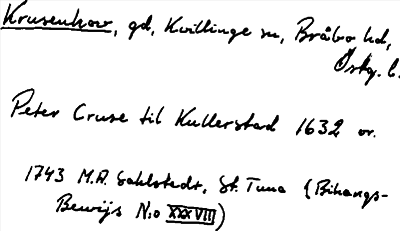 Krusenhov, gd, Kvillinge sn, Bråbo hd,
Östg. l.
Peter Cruse til Kullerstad 1632 or.
1743 M.A. Sahlstedt, St. Tuna (Bihangs-
Bewijs No XXXVII)